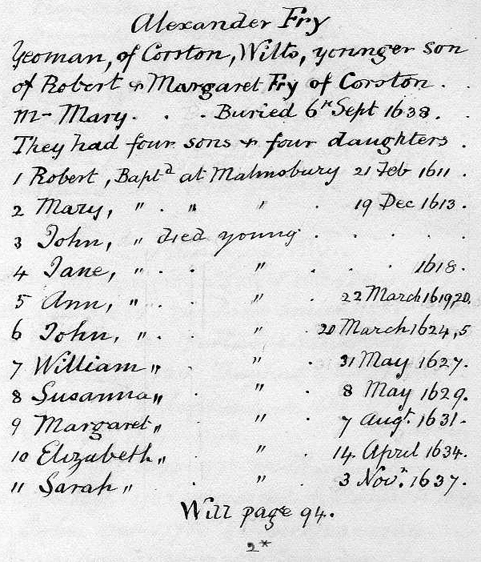 Alexander Fry
Yeoman, of Corston, Wilts, younger son
of Robert & Margaret Fry of Corston . .
m- Mary. . . Buried 6th Sept 1638. .
They had four sons & four daughters .
1 Robert, Baptd at Malmsbury 21 Feb 1611 .
2 Mary, " . " " . 19 Dec 1613 .
3 John, " died young . . . . .
4 Jane, " . " . . . 1618 .
5 Ann, " . " . 22 March 1619,20.
6 John, " . " . 20 March 1624,5
7 William " . " . 31 May 1627.
8 Susanna " . " . 8 May 1629.
9 Margaret " . " . 7 Augt. 1631.
10 Elizabeth " . " . 14 April 1634.
11 Sarah " . " . 3 Novr. 1637.
Will page 94.
2*